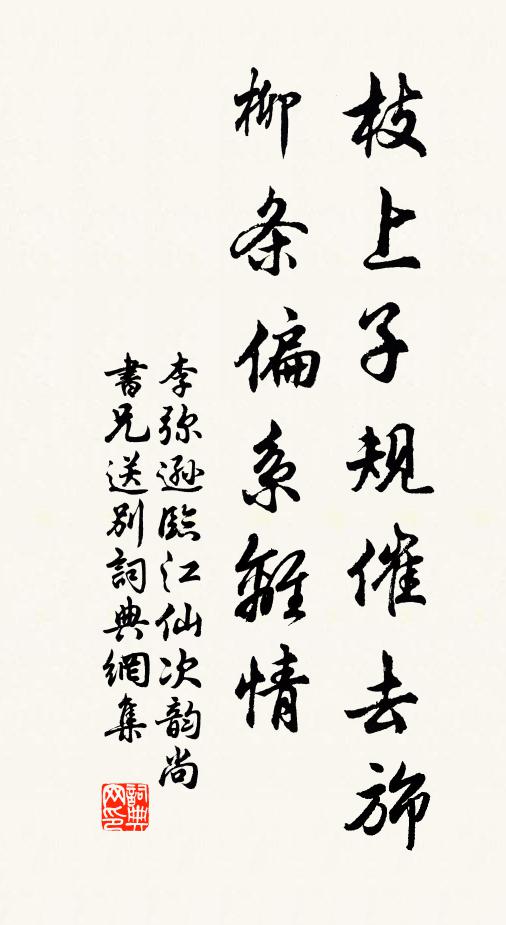 枝上子規催去旆
柳条偏系離情
李弥遜臨江仙次韵尚
書兄送别詞典網集
詞典
网印